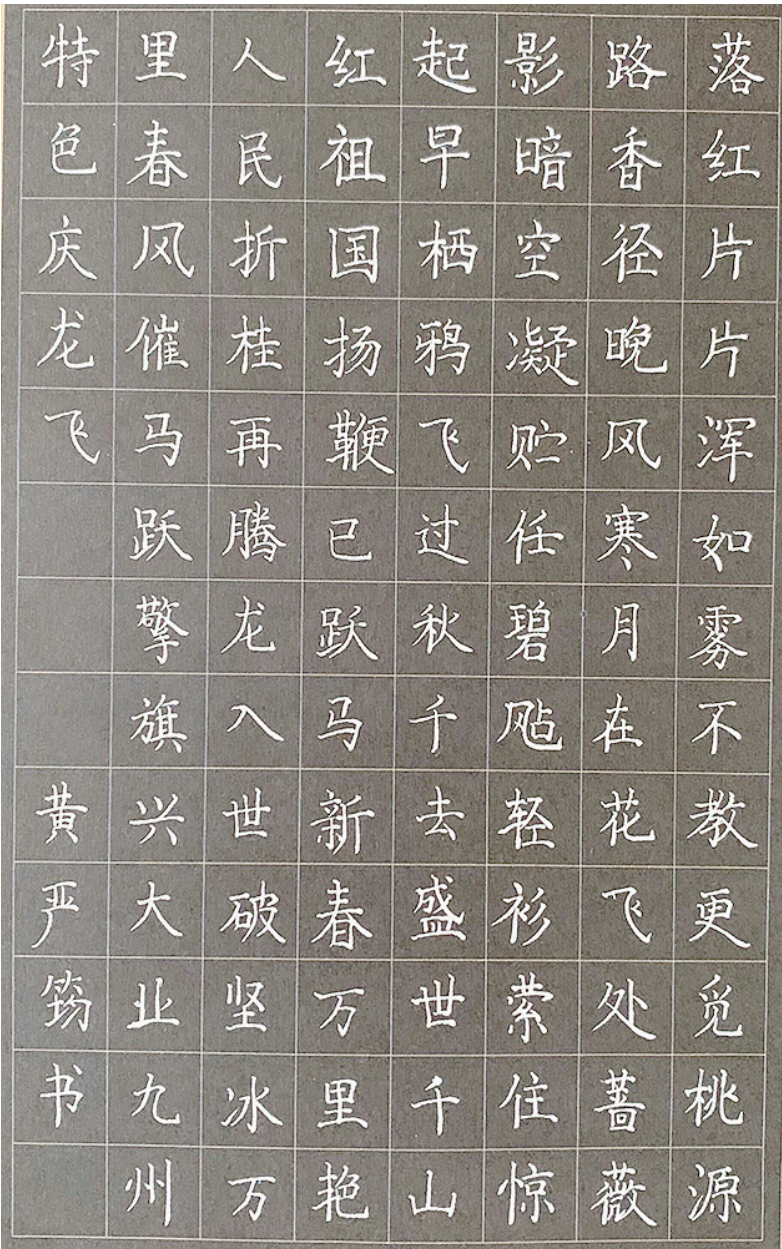 落红片片浑如雾不教更觅桃源
路香径晚风寒月在花飞处蔷薇
影暗空凝贮任碧飐轻衫萦住惊
起早栖鸦飞过秋千去盛世千山
红祖国扬鞭已跃马新春万里艳
人民折桂再腾龙入世破坚冰万
里春风催马跃擎旗兴大业九州
特色庆龙飞 黄严筠书